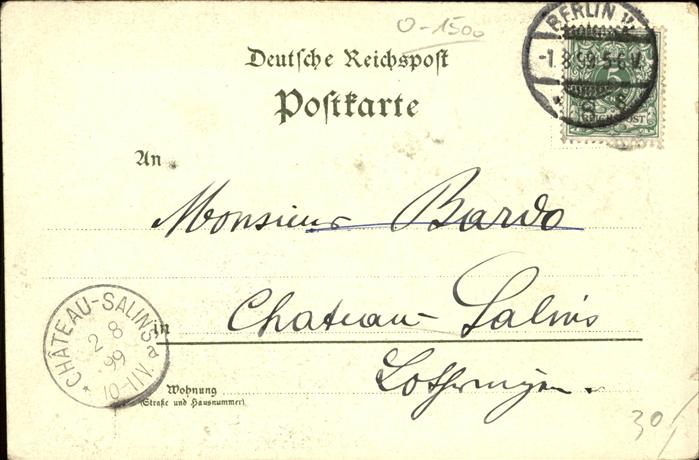 0-1500
BERLIN W.
-1.8.99.5-6V.
* 8 *
5
REICHSPOST
Deutsche Reichspost
Postkarte
An
Monsieur Bardo
CHÂTEAU-SALINS
2 8
99
10-11V.
in
Chateau-Salins
Lothringen.
Wohnung
(Straße und Hausnummer)
30/